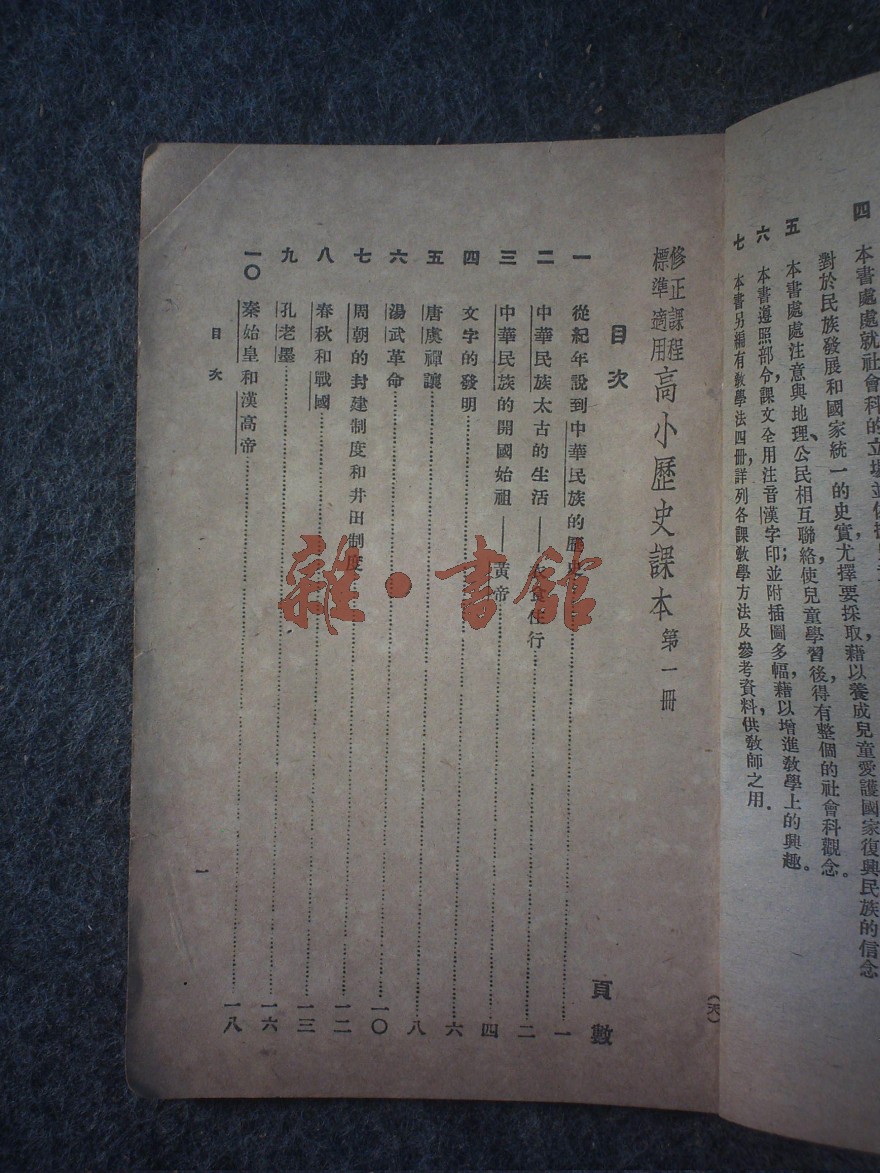 四 本書處處就社會科的立場，並
對於民族發展和國家統一的史實，尤擇要採取，藉以養成兒童愛護國家復興民族的信念。
五 本書處處注意與地理、公民相互聯絡，使兒童學習後，得有整個的社會科觀念。
六 本書遵照部令，課文全用注音漢字印；並附插圖多幅，藉以增進教學上的興趣。
七 本書另編有教學法四冊，詳列各課教學方法及參考資料，供教師之用。
(天)
修正課程標準適用 高小歷史課本 第一冊
目次 頁數
一 從紀年說到中華民族的歷史 一
二 中華民族太古的生活——衣食住行 二
三 中華民族的開國始祖——黃帝 四
四 文字的發明 六
五 唐虞禪讓 八
六 湯武革命 一〇
七 周朝的封建制度和井田制度 一二
八 春秋和戰國 一三
九 孔老墨 一六
一〇 秦始皇和漢高帝 一八
目次 一
雜·書館